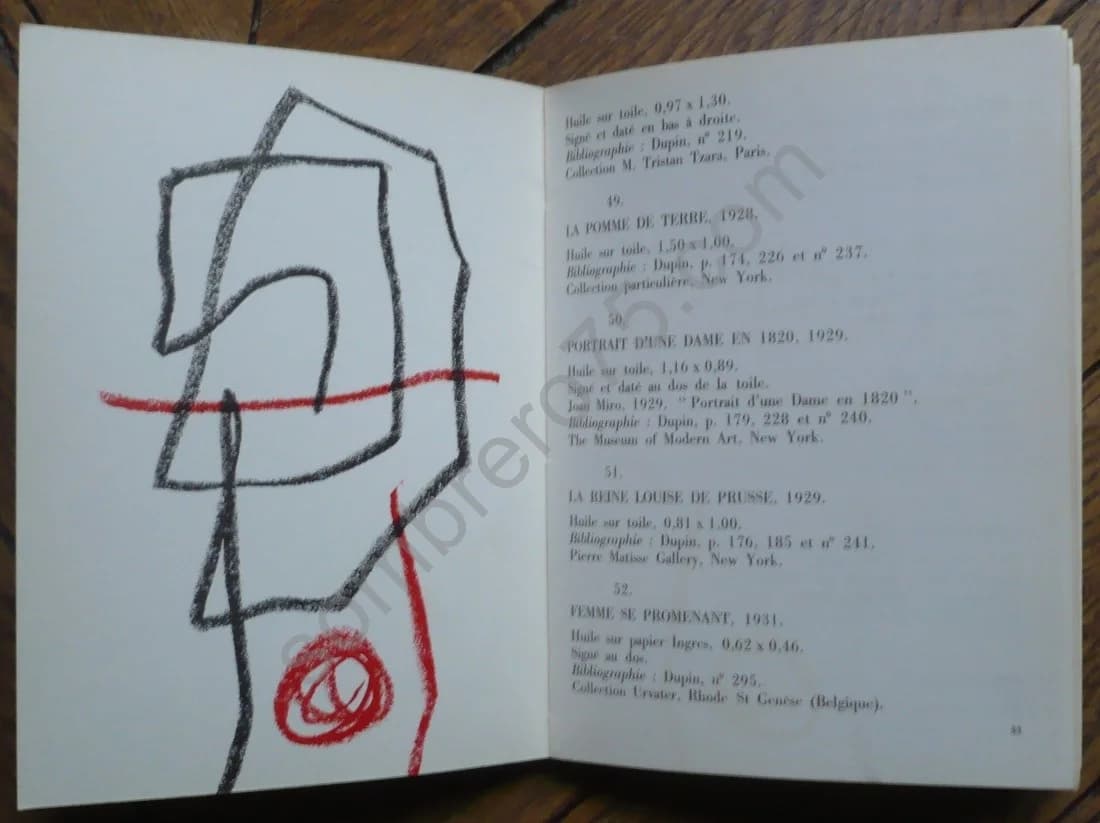 Huile sur toile, 0,97 x 1,30.
Signé et daté en bas à droite.
Bibliographie : Dupin, n° 219.
Collection M. Tristan Tzara, Paris.
49.
LA POMME DE TERRE, 1928.
Huile sur toile, 1,50 x 1,00.
Bibliographie : Dupin, p. 174, 226 et n° 237.
Collection particulière, New York.
50.
PORTRAIT D'UNE DAME EN 1820, 1929.
Huile sur toile, 1,16 x 0,89.
Signé et daté au dos de la toile.
Joan Miro, 1929, " Portrait d'une Dame en 1820 ".
Bibliographie : Dupin, p. 179, 228 et n° 240.
The Museum of Modern Art, New York.
51.
LA REINE LOUISE DE PRUSSE, 1929.
Huile sur toile, 0,81 x 1,00.
Bibliographie : Dupin, p. 176, 185 et n° 241.
Pierre Matisse Gallery, New York.
52.
FEMME SE PROMENANT, 1931.
Huile sur papier Ingres, 0,62 x 0,46.
Signé au dos.
Bibliographie : Dupin, n° 295.
Collection Urvater, Rhode St Genèse (Belgique).
sombrero75.com